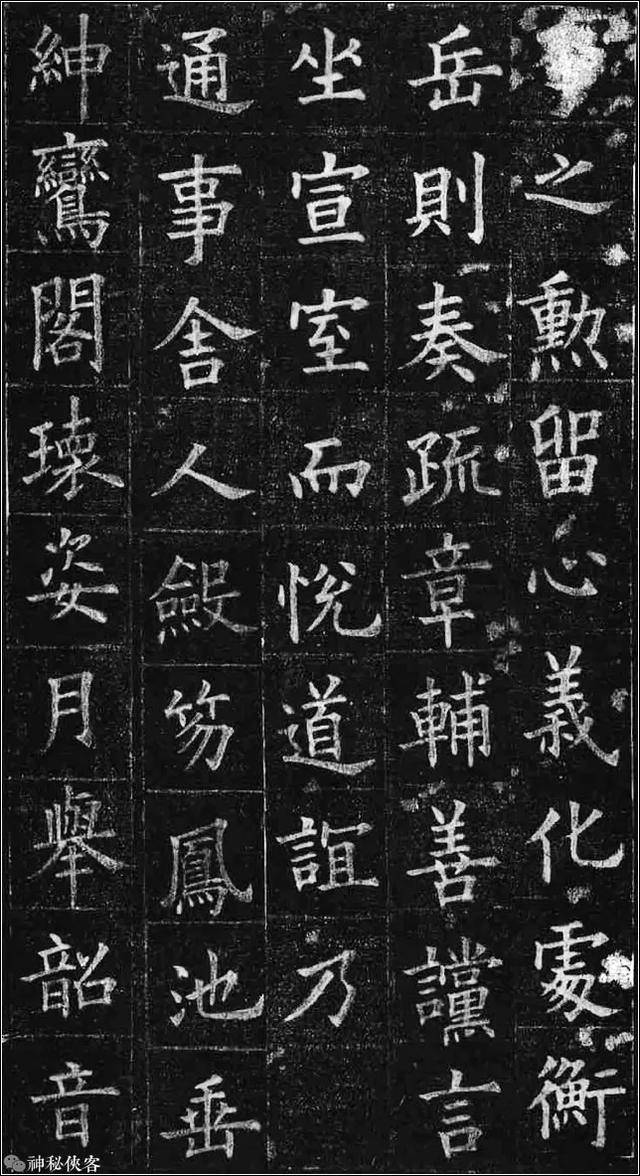 之勲留心義化處衡
岳則奏疏章輔善讜言
坐宣室而悅道誼乃
通事舍人斂笏鳳池垂
紳鸞閣瓌姿月舉韶音
神秘俠客